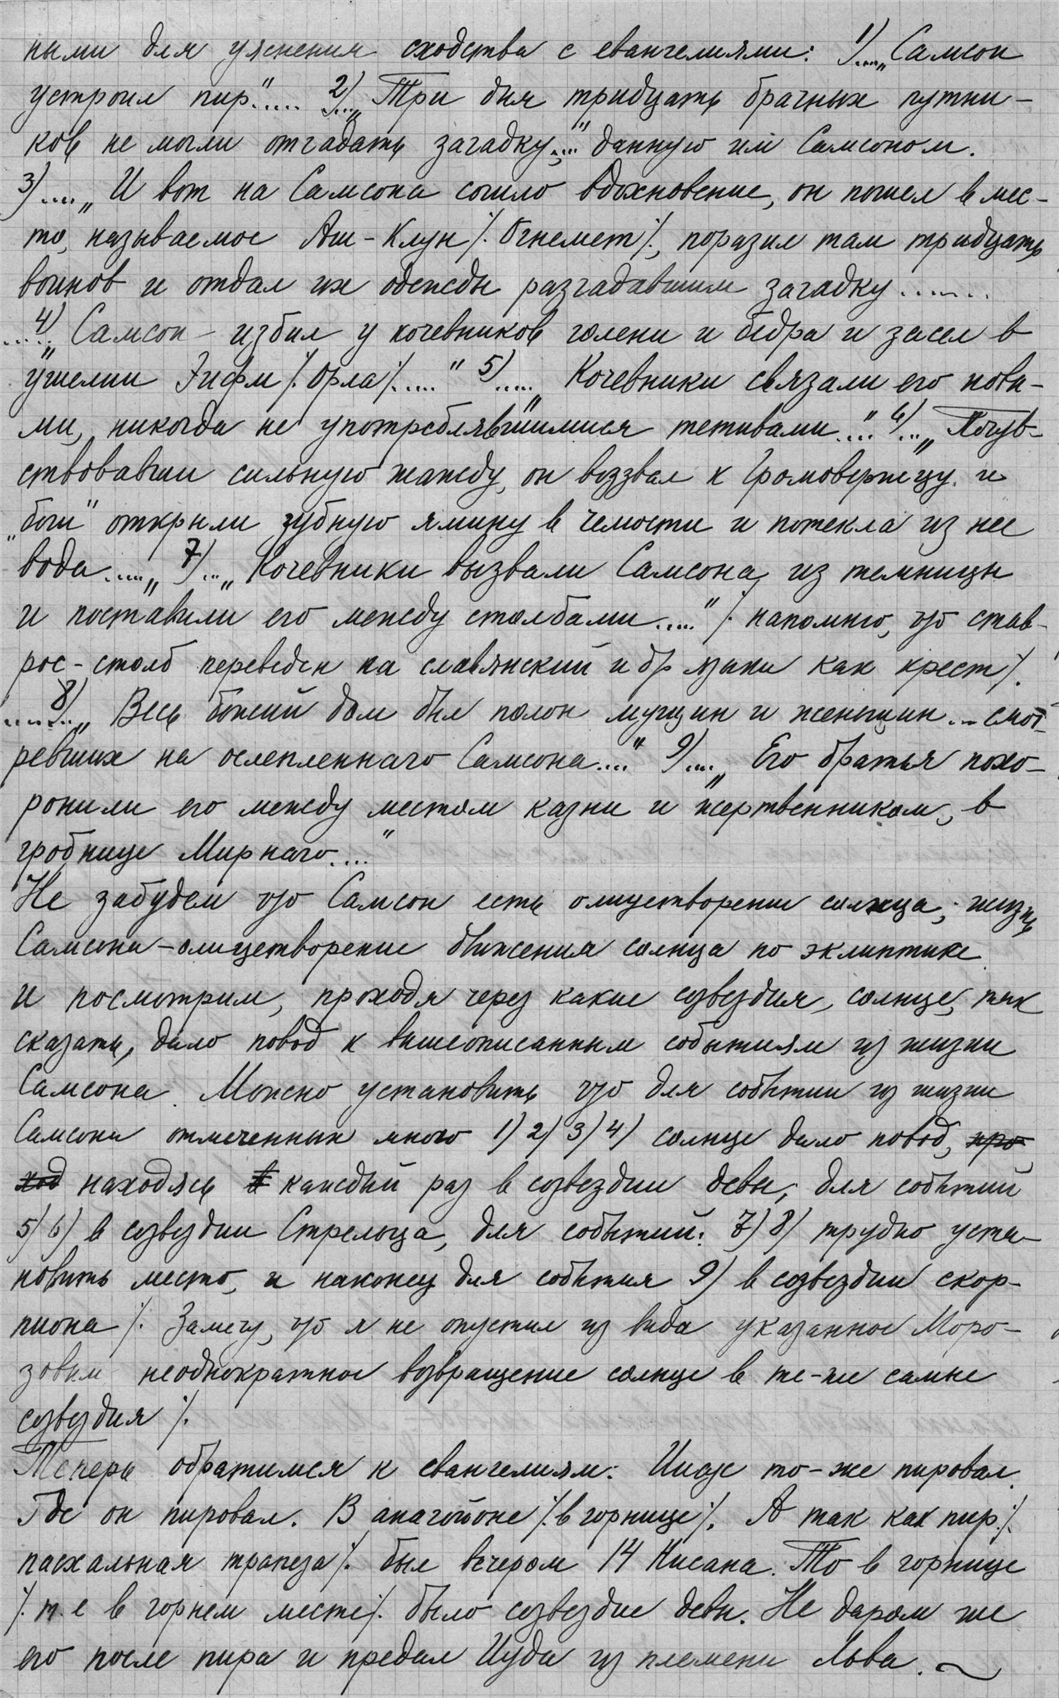 ными для уяснения сходства с евангелиями: 1)....„Самсон
устроил пир“..... 2)...„Три дня тридцать брачных путни-
ков не могли отгадать загадку....“ данную им Самсоном.
3)....„И вот на Самсона сошло вдохновение, он пошел в мес-
то, называемое Аш-Клун /. Огнемет/., поразил там тридцать
воинов и отдал их одежды разгадавшим загадку.......
.....4)„ Самсон - избил у кочевников голени и бедра и засел в
ущелии Эифм /. Орла/....." 5)....„ Кочевники связали его новы-
ми, никогда не употреблявшимися тетивами...." 6)..„ Почув-
ствовавши сильную жажду, он воззвал к Громовержцу. и
„боги" открыли зубную ямину в челюсти и потекла из нее
вода....„ 7)...„ Кочевники вызвали Самсона, из темницы
и поставили его между столбами....." /. напомню, что став-
рос-столб переведен на славянский и др языки как крест/.
.....8)„ Весь божий дом был полон мущин и женщин... смот-
ревших на ослепленнаго Самсона...." 9)....„ Его братья похо-
ронили его между местом казни и жертвенником, в
гробнице Мирнаго...."
Не забудем что Самсон есть олицетворение солнца; жизнь
Самсона-олицетворение движения солнца по эклиптике
и посмотрим, проходя через какие созвездия, солнце, так
сказать, дало повод к вышеописанным событиям из жизни
Самсона. Можно установить что для событий из жизни
Самсона отмеченных мною 1) 2) 3) 4) солнце дало повод, про
ход находясь в каждый раз в созвездии девы, для событий
5) 6) в созвездии Стрельца, для событий: 7) 8) трудно уста-
новить место, и наконец для события 9) в созвездии скор-
пиона /. Замечу, что я не опустил из вида указанное Моро-
зовым неоднократное возвращение солнце в те-же самые
созвездия /.
Теперь обратимся к евангелиям: Иисус то-же пировал.
Где он пировал. В анагойоне /. в горнице/. А так как пир /.
пасхальная трапеза/. был вечером 14 Нисана. То в горнице
/. т.е в горнем месте/. было созвездие девы. Не даром же
его после пира и предал Иуда из племени Льва.